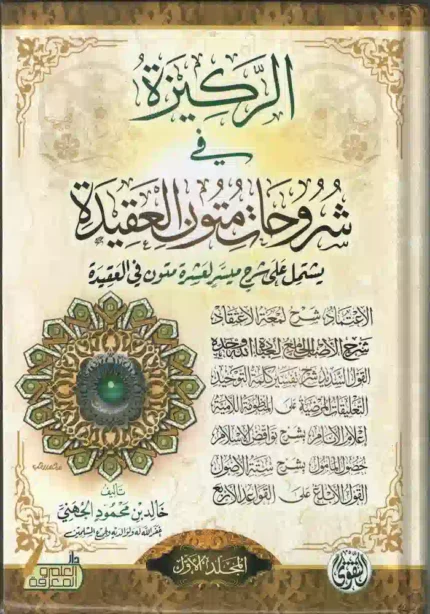 الرَّكِيزَةُ
في
شُرُوحَاتِ مُتُونِ العَقِيدَةِ
يشتمل على شرح ميسر لعشرة متون في العقيدة
الاعتماد شرح لمعة الاعتقاد
شرح الأصل الجامع لعبادة الله وحده
القول السديد شرح تفسير كلمة التوحيد
التعليقات المرضية على المنظومة اللامية
إعلام الأنام بشرح نواقض الإسلام
حصول المأمول بشرح ستة الأصول
القول الأبلغ على القواعد الأربع
تأليف
خالد بن محمود الجهني
غفر الله له ولوالديه ولجميع المسلمين
المجلد الأول
دار
العلم و
المعرفة
التقوى